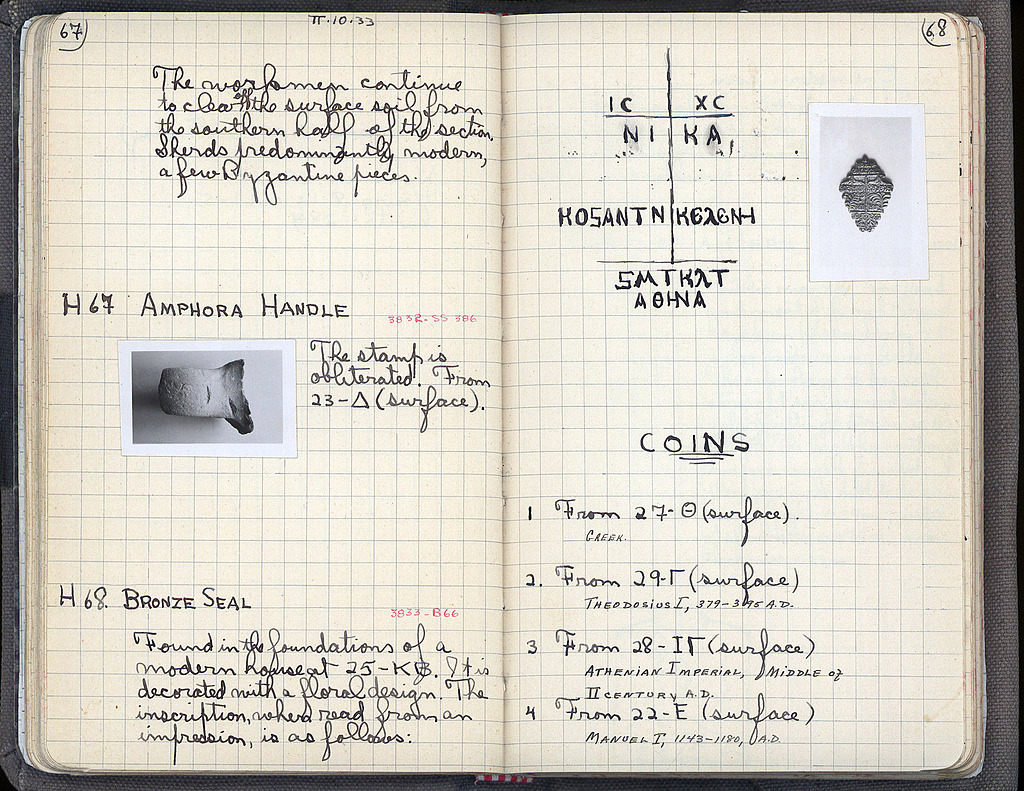 67
II·10·33
The workmen continue
to clear off the surface soil from
the southern half of the section.
Sherds predominantly modern,
a few Byzantine pieces.
H 67 AMPHORA HANDLE
3832-SS 386
The stamp is
obliterated. From
23-Δ (surface).
H 68. BRONZE SEAL
3833-B66
Found in the foundations of a
modern house at 25-KB. It is
decorated with a floral design. The
inscription, when read from an
impression, is as follows:
68
IC XC
NI KA
ΑΘΗΝΑ
COINS
1 From 27-Θ (surface).
GREEK.
2. From 29-Γ (surface)
THEODOSIUS I, 379-395 A.D.
3 From 28-ΙΓ (surface)
ATHENIAN IMPERIAL, MIDDLE OF
II CENTURY A.D.
4 From 22-E (surface)
MANUEL I, 1143-1180, A.D.